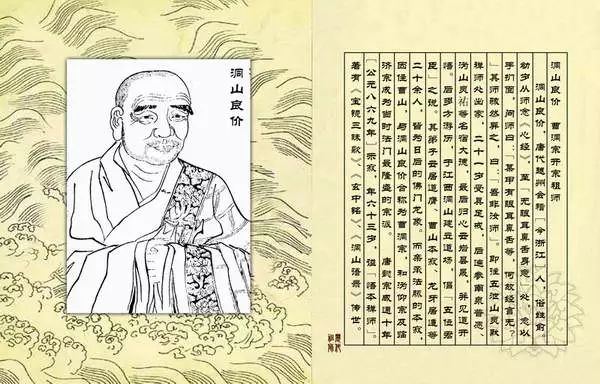 洞山良价
洞山良价　曹洞宗开宗祖师
洞山良价，唐代越州会稽（今浙江）人，俗姓俞
幼岁从师念《心经》，至「无眼耳鼻舌身意」处，忽以
手扪面，问师曰：「某甲有眼耳鼻舌等，何故经言无？
」其师骇然异之，曰：「吾非汝师」，即往五泄山灵默
禅师处出家，二十一岁受具足戒，后遍参南泉普愿、
沩山灵祐等名宿大德，最后归心云岩昙晟，并见道开
悟。后多方游历，于江西洞山建立道场，倡「五位君
臣」之说，其弟子云居道膺、曹山本寂、龙牙居遁等
二十余人，皆为日后的佛门龙象。而亲承法脉的本寂，
因住曹山，与洞山良价合称为曹洞宗，和沩仰宗及临
济宗成为当时法门最隆盛的宗派。唐懿宗咸通十年
（公元八六九年）示寂，年六十三岁，谥「悟本禅师」。
著有《宝镜三昧歌》、《玄中铭》、《洞山语录》传世。